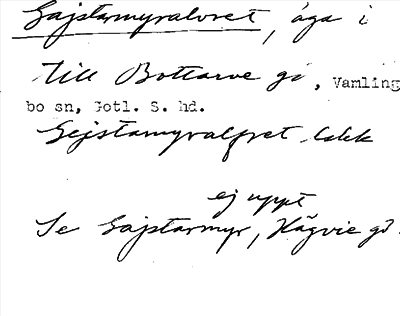 Gajstarmyralvret, äga i
till Bottarve gd, Vamling
bo sn, Gotl. S. hd.
Gejstamyralfret
ej uppt
Se Gajstarmyr, Hägvie gd.